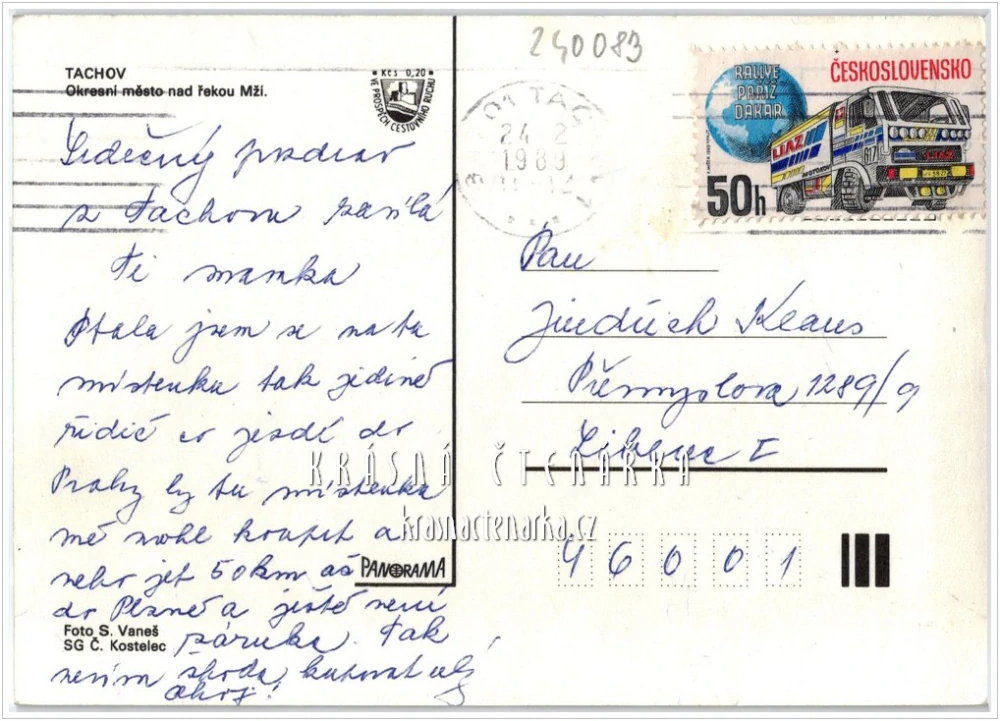 240083
TACHOV
Okresní město nad řekou Mží.
Kčs 0,20
VE PROSPĚCH CESTOVNÍHO RUCHU
TAC
24. 2.
1989
RALLYE
PAŘÍŽ
DAKAR
ČESKOSLOVENSKO
LIAZ
LIAZ
50h
Srdečný pozdrav
z Tachova zasílá
Ti mamka
Ptala jsem se na tu
místenku tak jedině
řidič co jezdí do
Prahy by tu místenku
mě mohl koupit a
nebo jet 50 km až
do Plzně a ještě není
záruka. Tak
nevím škoda kupovat
Ahoj!
PANORAMA
Foto S. Vaneš
SG Č. Kostelec
Pan
Jindřich Klaus
Přemyslova 1289/9
Liberec I
46001
KRÁSNÁ ČTENÁŘKA
krasnactenarka.cz